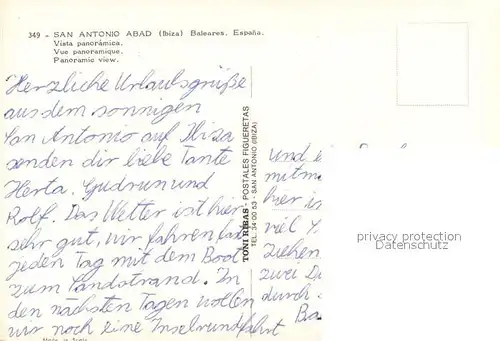 349 - SAN ANTONIO ABAD (Ibiza) Baleares. España.
Vista panorámica.
Vue panoramique.
Panoramic view.
Herzliche Urlaubsgrüße
aus dem sonnigen
San Antonio auf Ibiza
senden dir liebe Tante
Herta. Gudrun und
Rolf. Das Wetter ist hier
sehr gut, wir fahren fast
jeden Tag mit dem Boot
zum Sandstrand. In
den nächsten Tagen wollen
wir noch eine Inselrundfahrt
TONI RIBAS - POSTALES FIGUERETAS
TEL. 34 00 53 - SAN ANTONIO (IBIZA)
und
mitm
hier is
viel
ziehen
zwei
durch
privacy protection
watermark